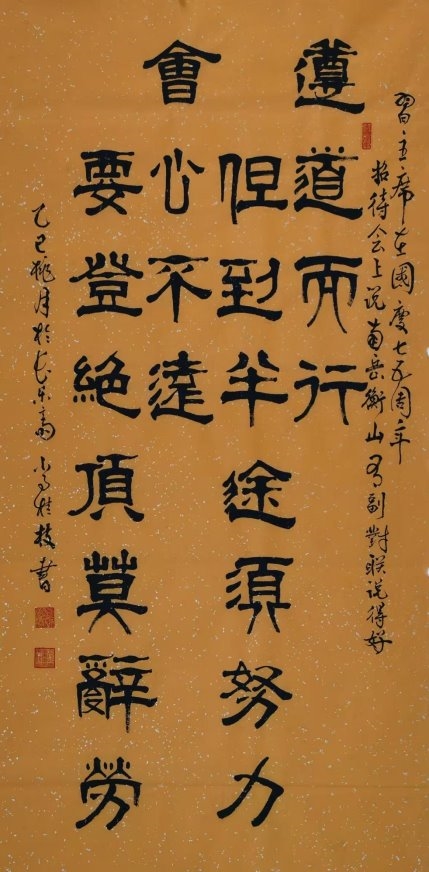 習主席在國慶七五周年
招待会上说南岳衡山有副對联说得好
遵道而行
但到半途須努力
會心不遠
要登絕頂莫辭勞
乙巳桃月於 桂枝書